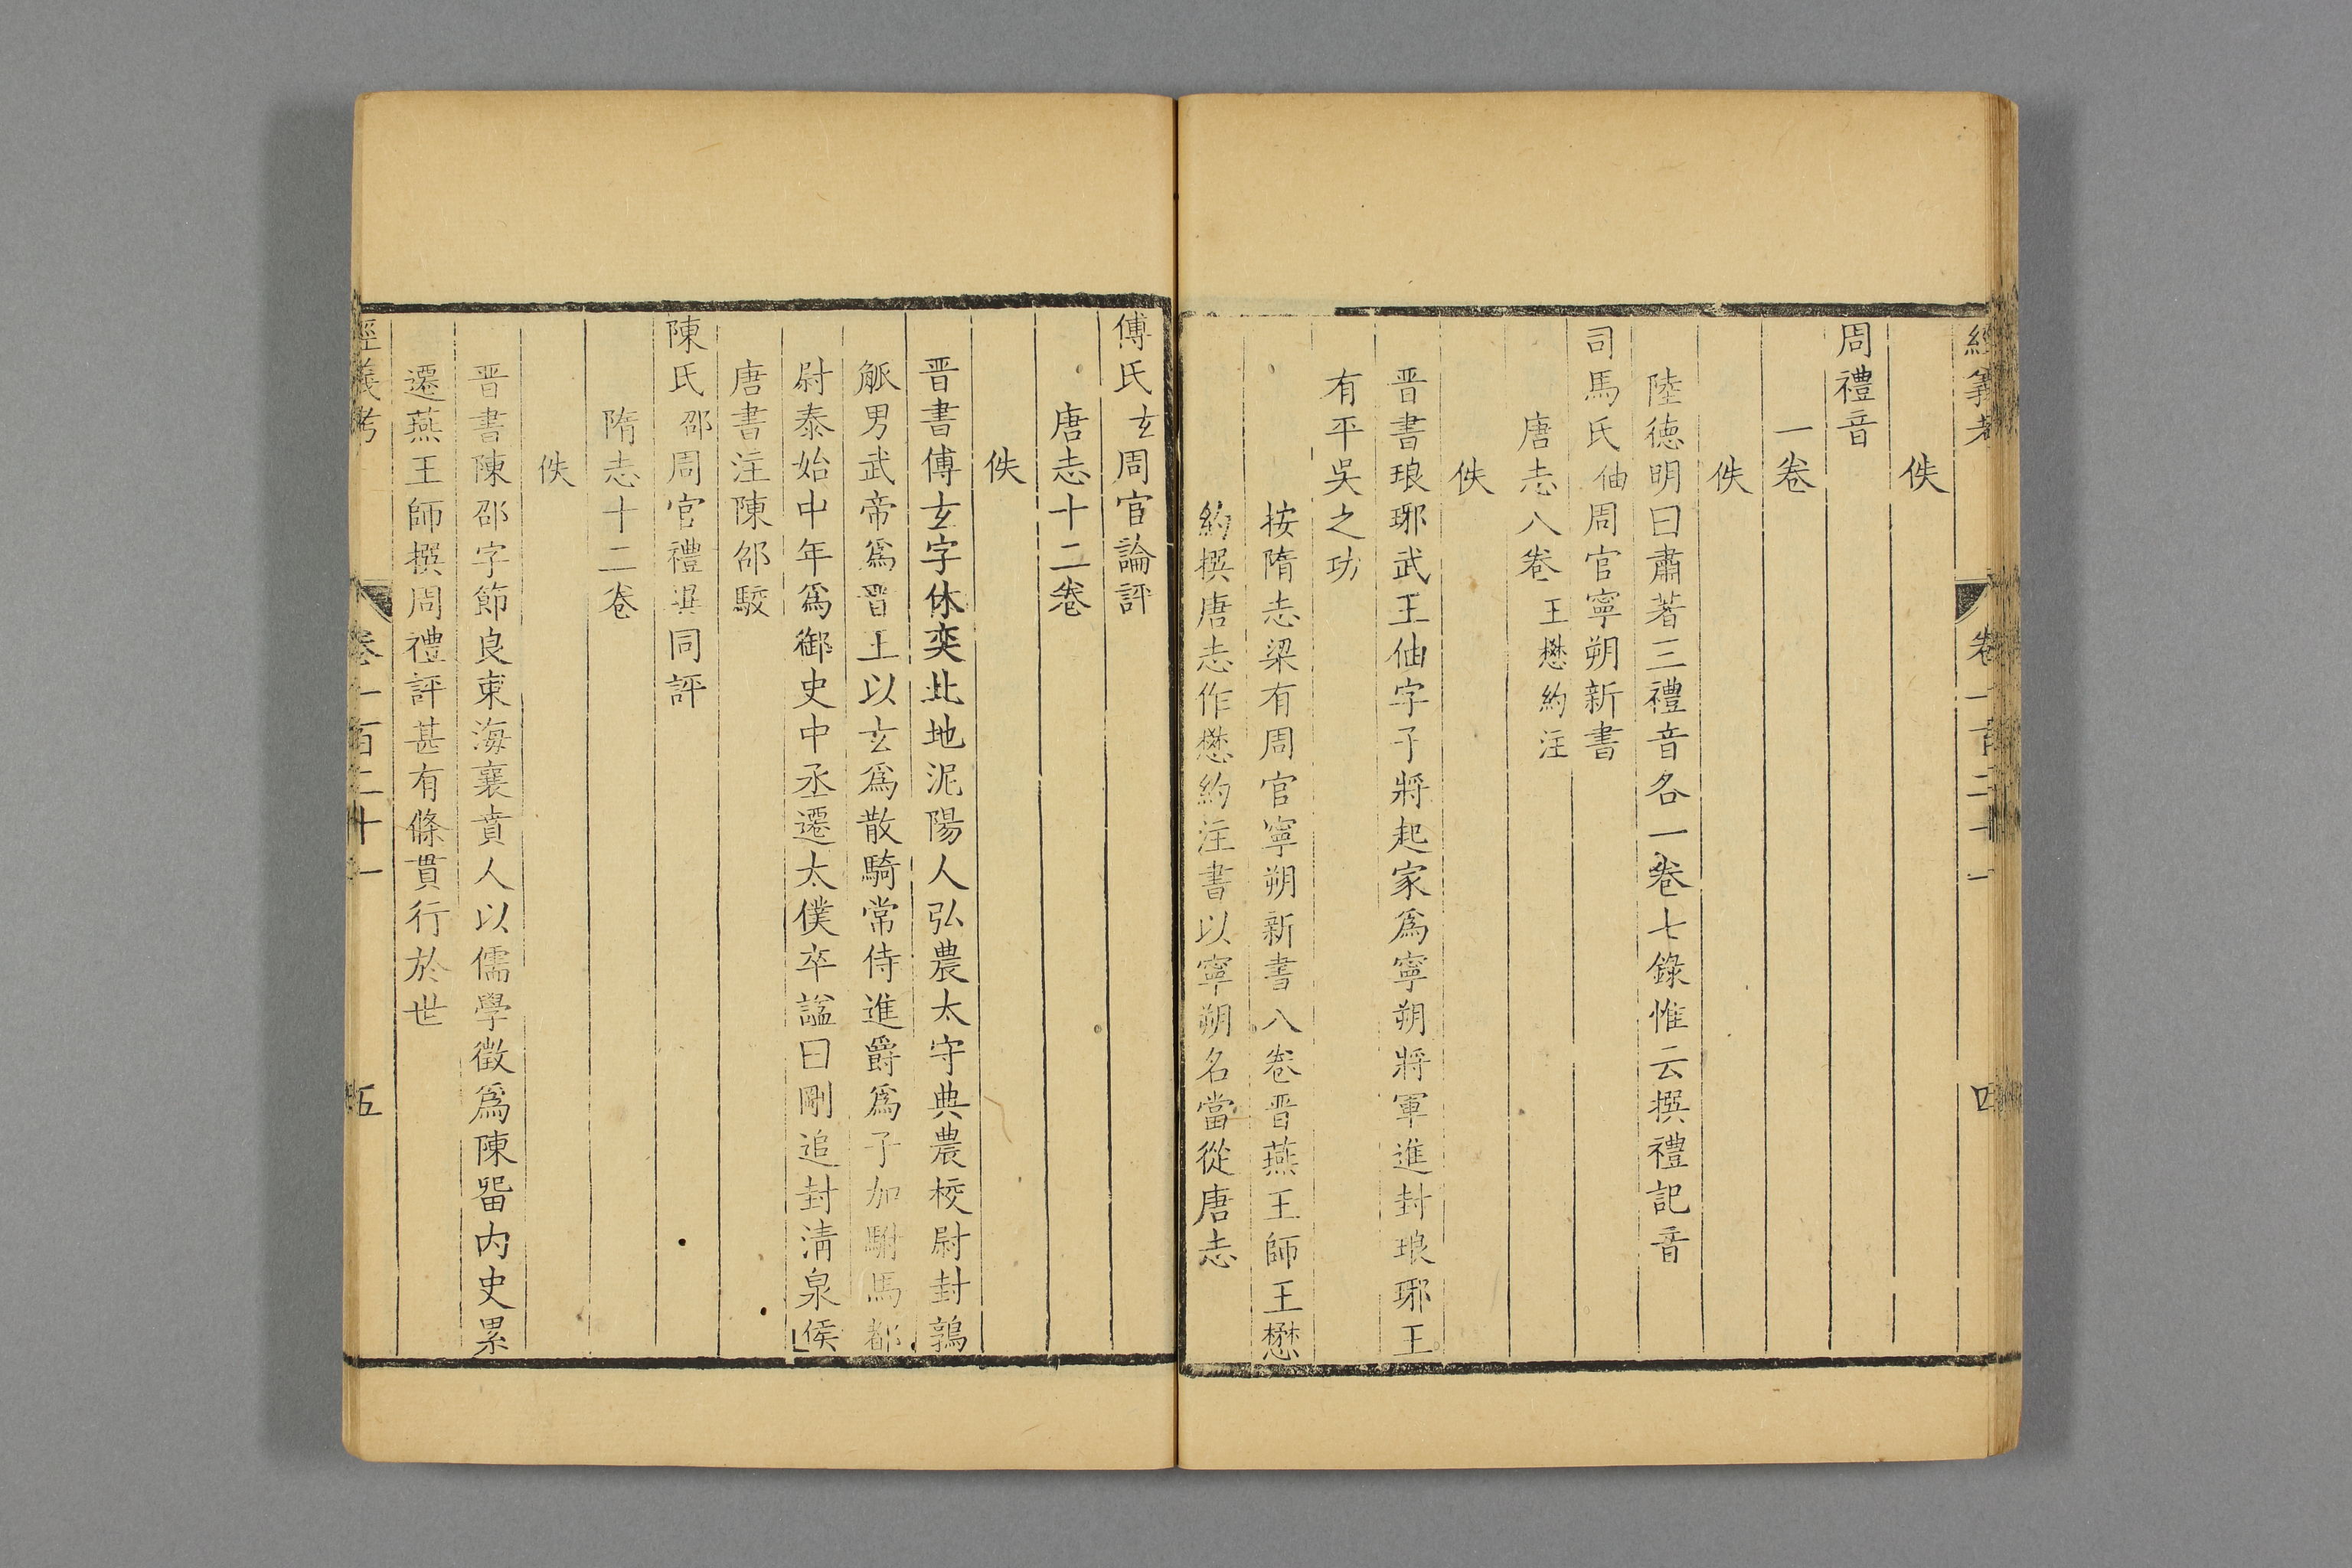 經義考 卷一百二十一 四
佚
周禮音
一卷
佚
陸德明曰肅著三禮音各一卷七錄惟云撰禮記音
司馬氏伷周官寧朔新書
唐志八卷王懋約注
佚
晋書琅邪武王伷字子將起家爲寧朔將軍進封琅邪王
有平吳之功
按隋志梁有周官寧朔新書八卷晋燕王師王懋
約撰唐志作懋約注書以寧朔名當從唐志
傅氏玄周官論評
唐志十二卷
佚
晋書傅玄字休奕北地泥陽人弘農太守典農校尉封鶉
觚男武帝爲晋王以玄爲散騎常侍進爵爲子加駙馬都
尉泰始中年爲御史中丞遷太僕卒諡曰剛追封清泉侯
唐書注陳邵駮
陳氏邵周官禮異同評
隋志十二卷
佚
晋書陳邵字節良東海襄賁人以儒學徵爲陳畱内史累
遷燕王師撰周禮評甚有條貫行於世
經義考 卷一百二十一 五